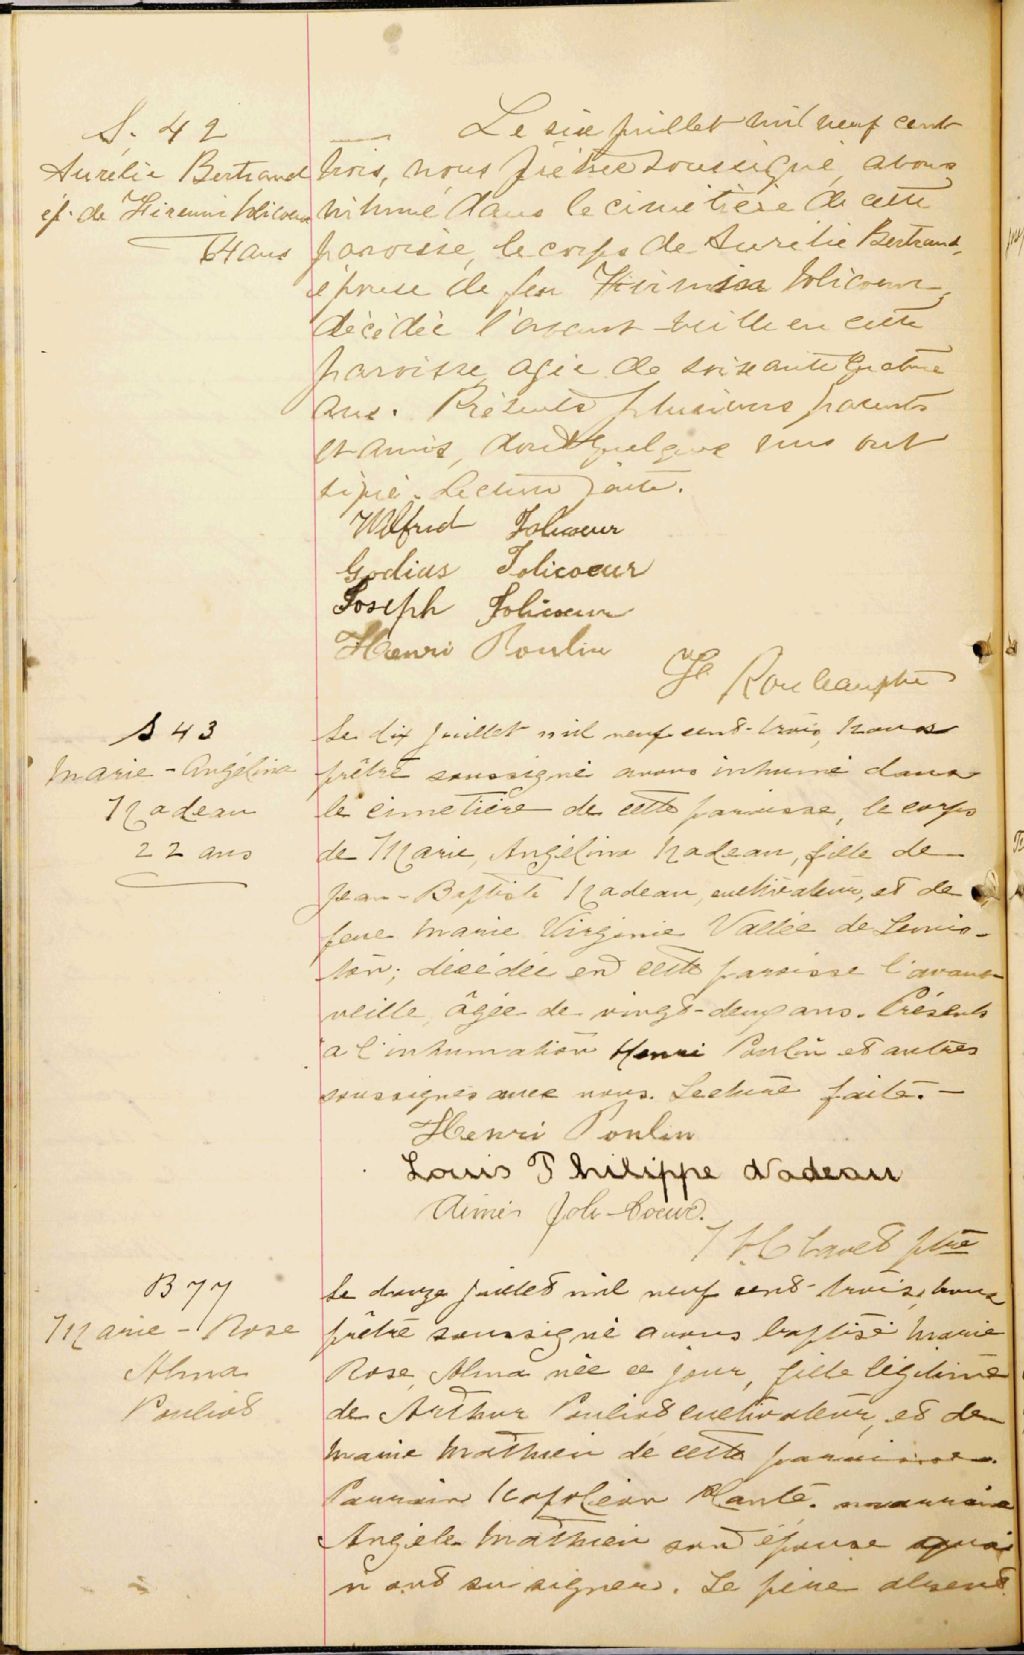 S. 42
Aurélie Bertrand
ép. de Jolicoeur
64 ans
Le six juillet mil neuf cent
trois, nous prêtre soussigné, avons
inhumé dans le cimetière de cette
paroisse, le corps de Aurélie Bertrand,
épouse de feu Jolicoeur,
décédée l'avant-veille en cette
paroisse agée de soixante quatre
ans. Présents plusieurs parents
et amis, dont quelques uns ont
signé. Lecture faite.
Wilfrid Jolicoeur
Godius Jolicoeur
Joseph Jolicoeur
Henri Poulin
Rouleau ptre
S 43
Marie-Angélina
Nadeau
22 ans
Le dix juillet mil neuf cent-trois, nous
prêtre soussigné avons inhumé dans
le cimetière de cette paroisse, le corps
de Marie, Angélina Nadeau, fille de
Jean-Baptiste Nadeau, cultivateur, et de
feue Marie Virginie Vallée de Lewis-
ton; décédée en cette paroisse l'avant-
veille, âgée de vingt-deux ans. Présents
a l'inhumation Henri Poulin et autres
soussignés avec nous. Lecture faite.-
Henri Poulin
Louis Philippe Nadeau
Aimé Joli-Coeur.
ptre
B 77
Marie-Rose
Alma
Pouliot
Le douze juillet mil neuf cent-trois, nous
prêtre soussigné avons baptisé Marie
Rose, Alma née ce jour, fille légitime
de Arthur Pouliot cultivateur, et de
Marie Mathieu de cette paroisse.
Parrain Napoléon Plante. marraine
Angèle Mathieu son épouse qui
n'ont su signer. Le père absent.